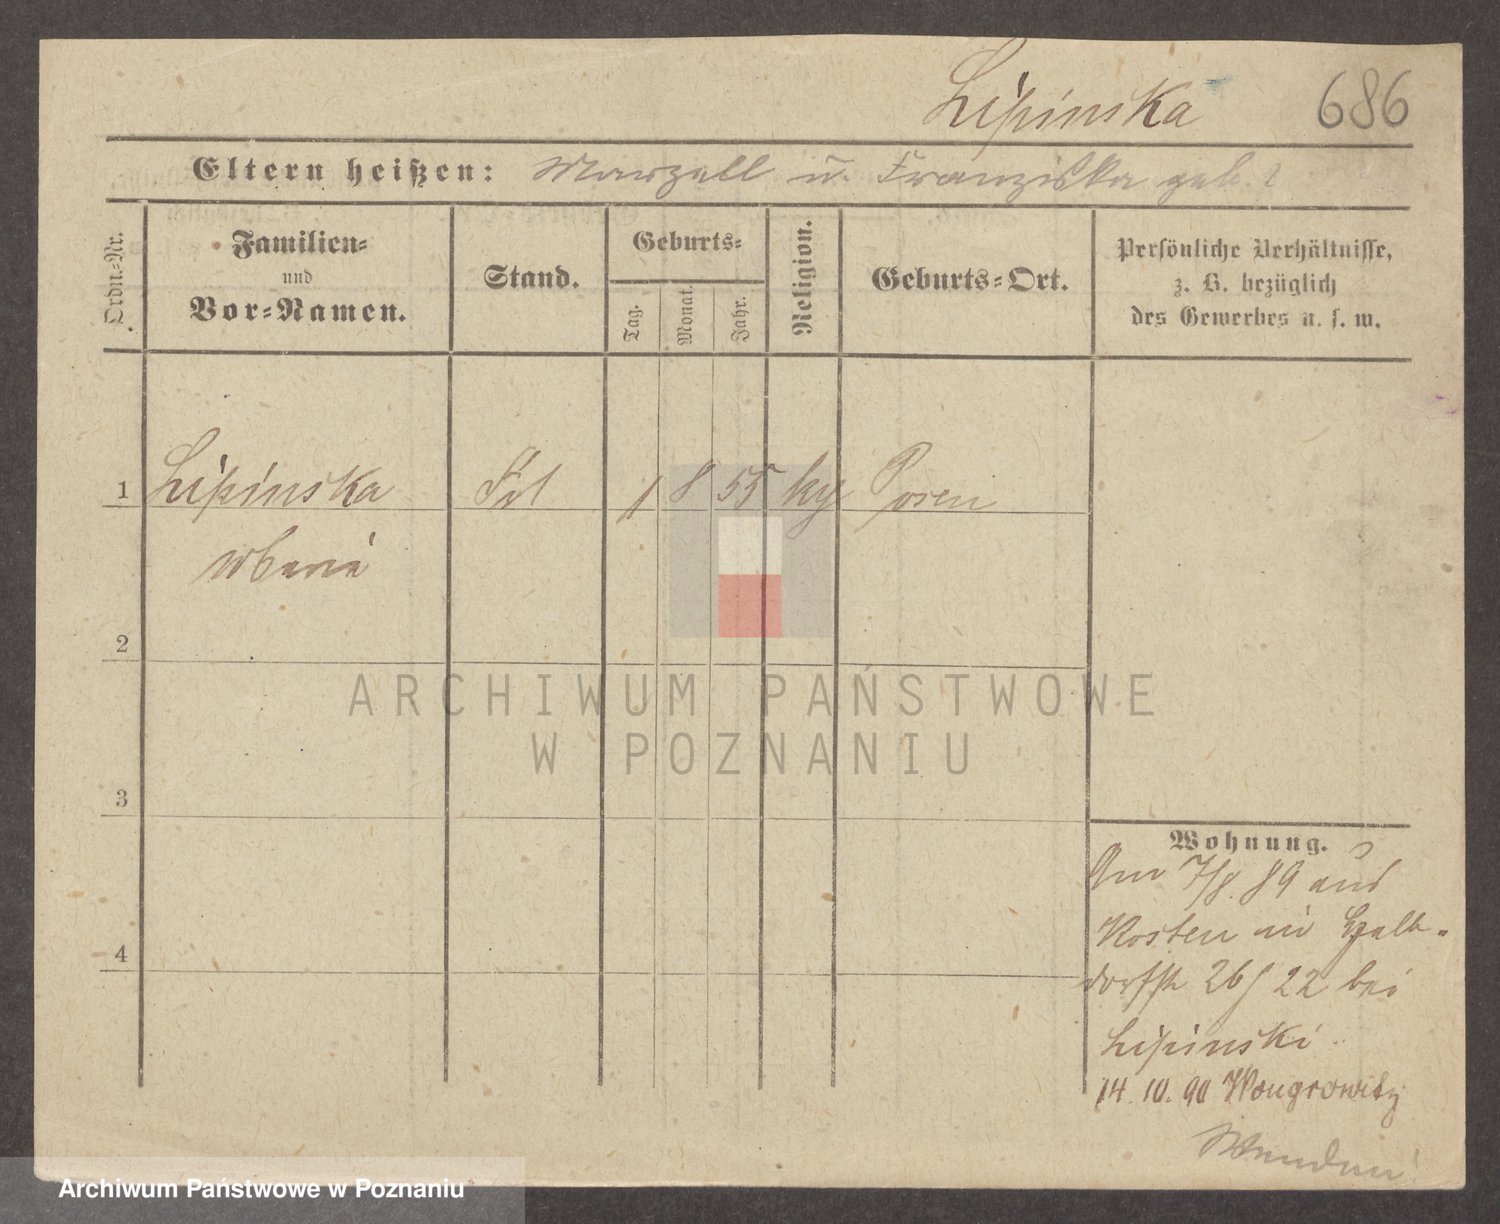 Lipinska 686
Eltern heißen: Marzell u. Franziska geb. ?
Ordn.-Nr.
Familien-
und
Vor-Namen.
Stand.
Geburts-
Tag.
Monat.
Jahr.
Religion.
Geburts-Ort.
Persönliche Verhältnisse,
z. B. bezüglich
des Gewerbes u. s. w.
1 Lipinska Frl 1 8 55 Posen
2
3
4
ARCHIWUM PAŃSTWOWE
W POZNANIU
Wohnung.
Am 7/8. 89 aus
Kosten in Halb-
dorfstr 26/22 bei
Lipinski
14. 10. 90 Wongrowitz
Archiwum Państwowe w Poznaniu